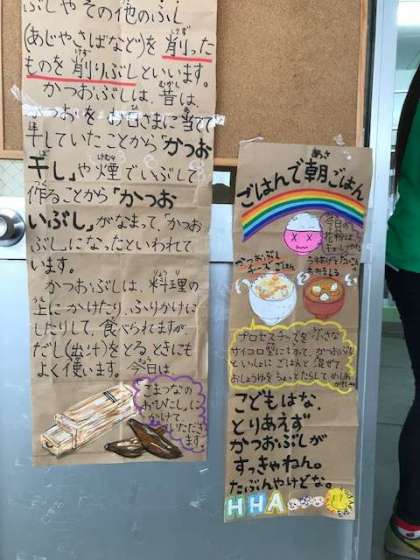 ぶしやその他のふし
(あじやさばなど)を削った
ものを削りぶしといいます。
かつおぶしは、昔は、
かつおをお日さまに当てて
干していたことから「かつお
干し」や煙でいぶして
作ることから「かつお
いぶし」がなまって、「かつお
ぶし」になったといわれて
います。
かつおぶしは、料理の
上にかけたり、ふりかけに
したりして、食べられますが
だし(出汁)をとるときにも
よく使います。今日は、
こまつなの
おひたしに、
かけて
いただき
ます。
ごはんで朝ごはん
今日の
かつおぶし
チーズごはん
プロセスチーズを小さな
サイコロ型にして、かつおぶし
といっしょにごはんと混ぜて
おしょうゆをちょっとたらして
こどもはな、
とりあえず
かつおぶしが
すっきゃねん。
たぶんやけどな。
HHA